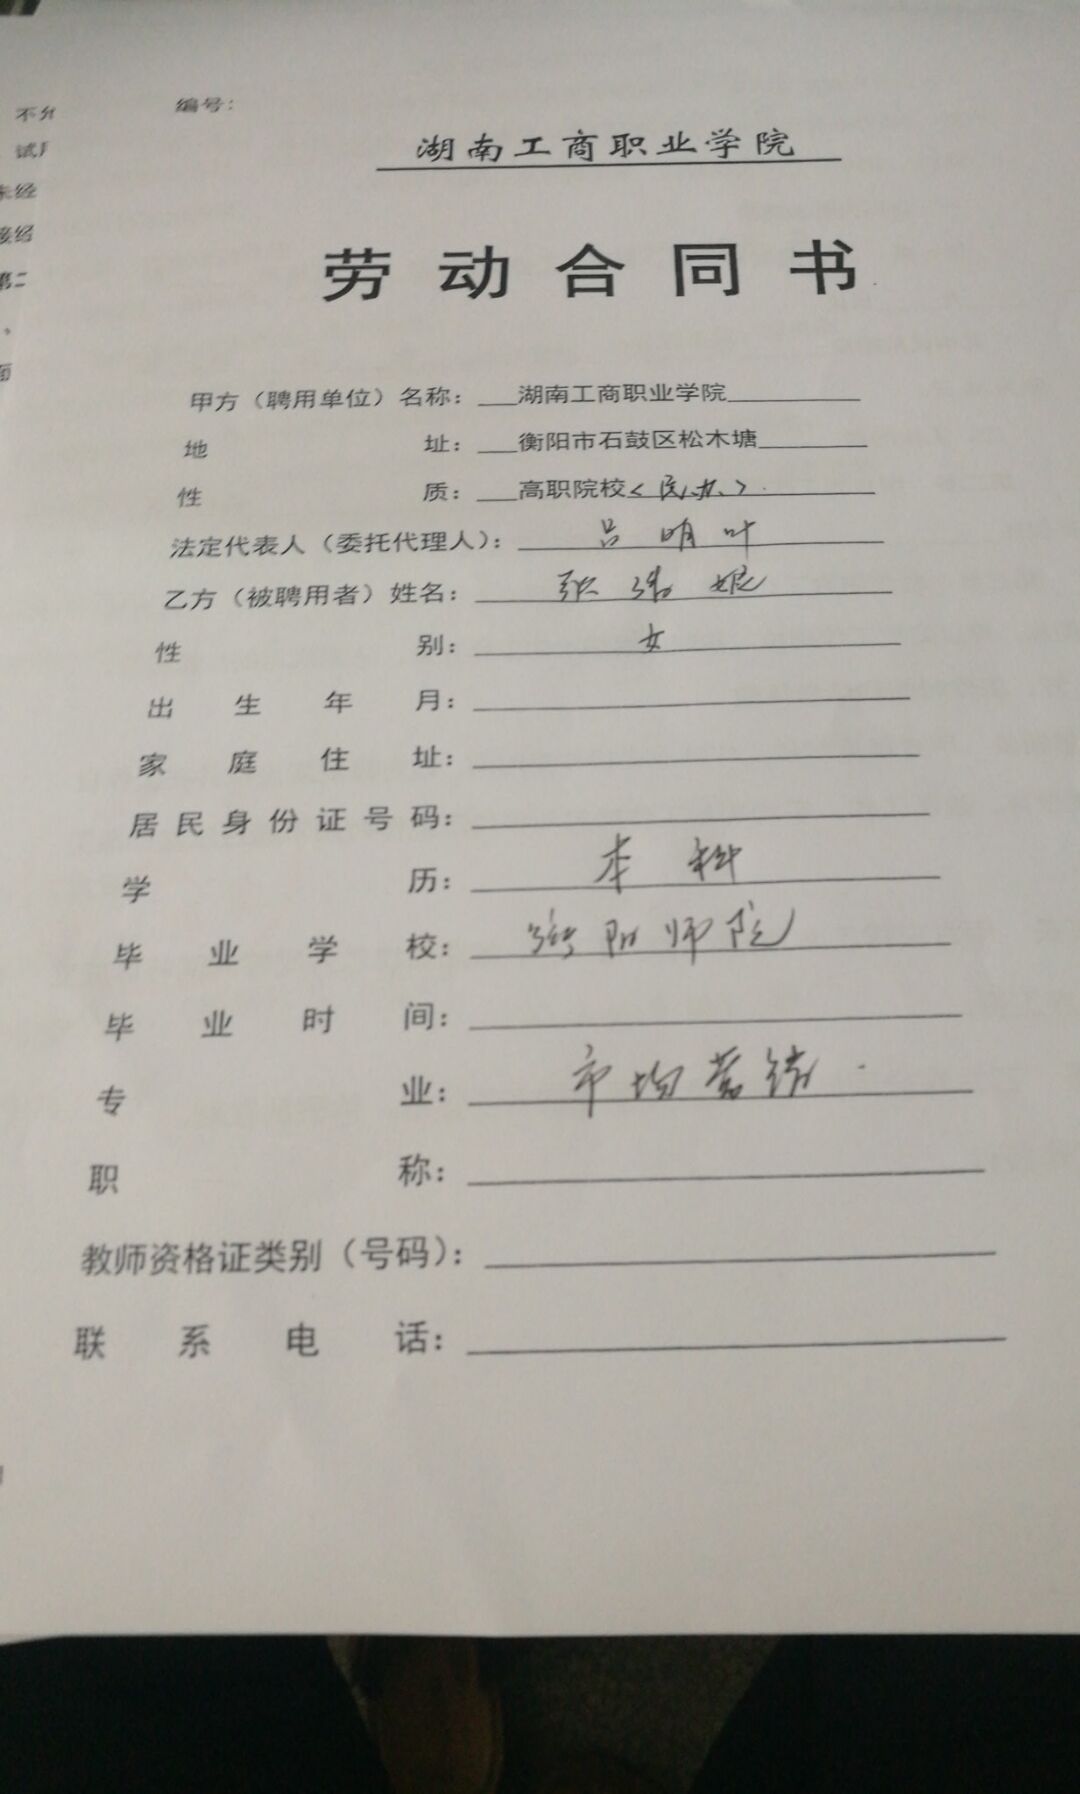 编号：
湖南工商职业学院
劳动合同书
甲方（聘用单位）名称：湖南工商职业学院
地址：衡阳市石鼓区松木塘
性质：高职院校<民办>
法定代表人（委托代理人）：吕明叶
乙方（被聘用者）姓名：
性别：女
出生年月：
家庭住址：
居民身份证号码：
学历：本科
毕业学校：衡阳师院
毕业时间：
专业：市场营销
职称：
教师资格证类别（号码）：
联系电话：
未经
第二